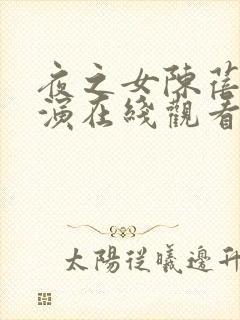 夜之女陳蓓
演在綫觀看
太陽從曦邊升